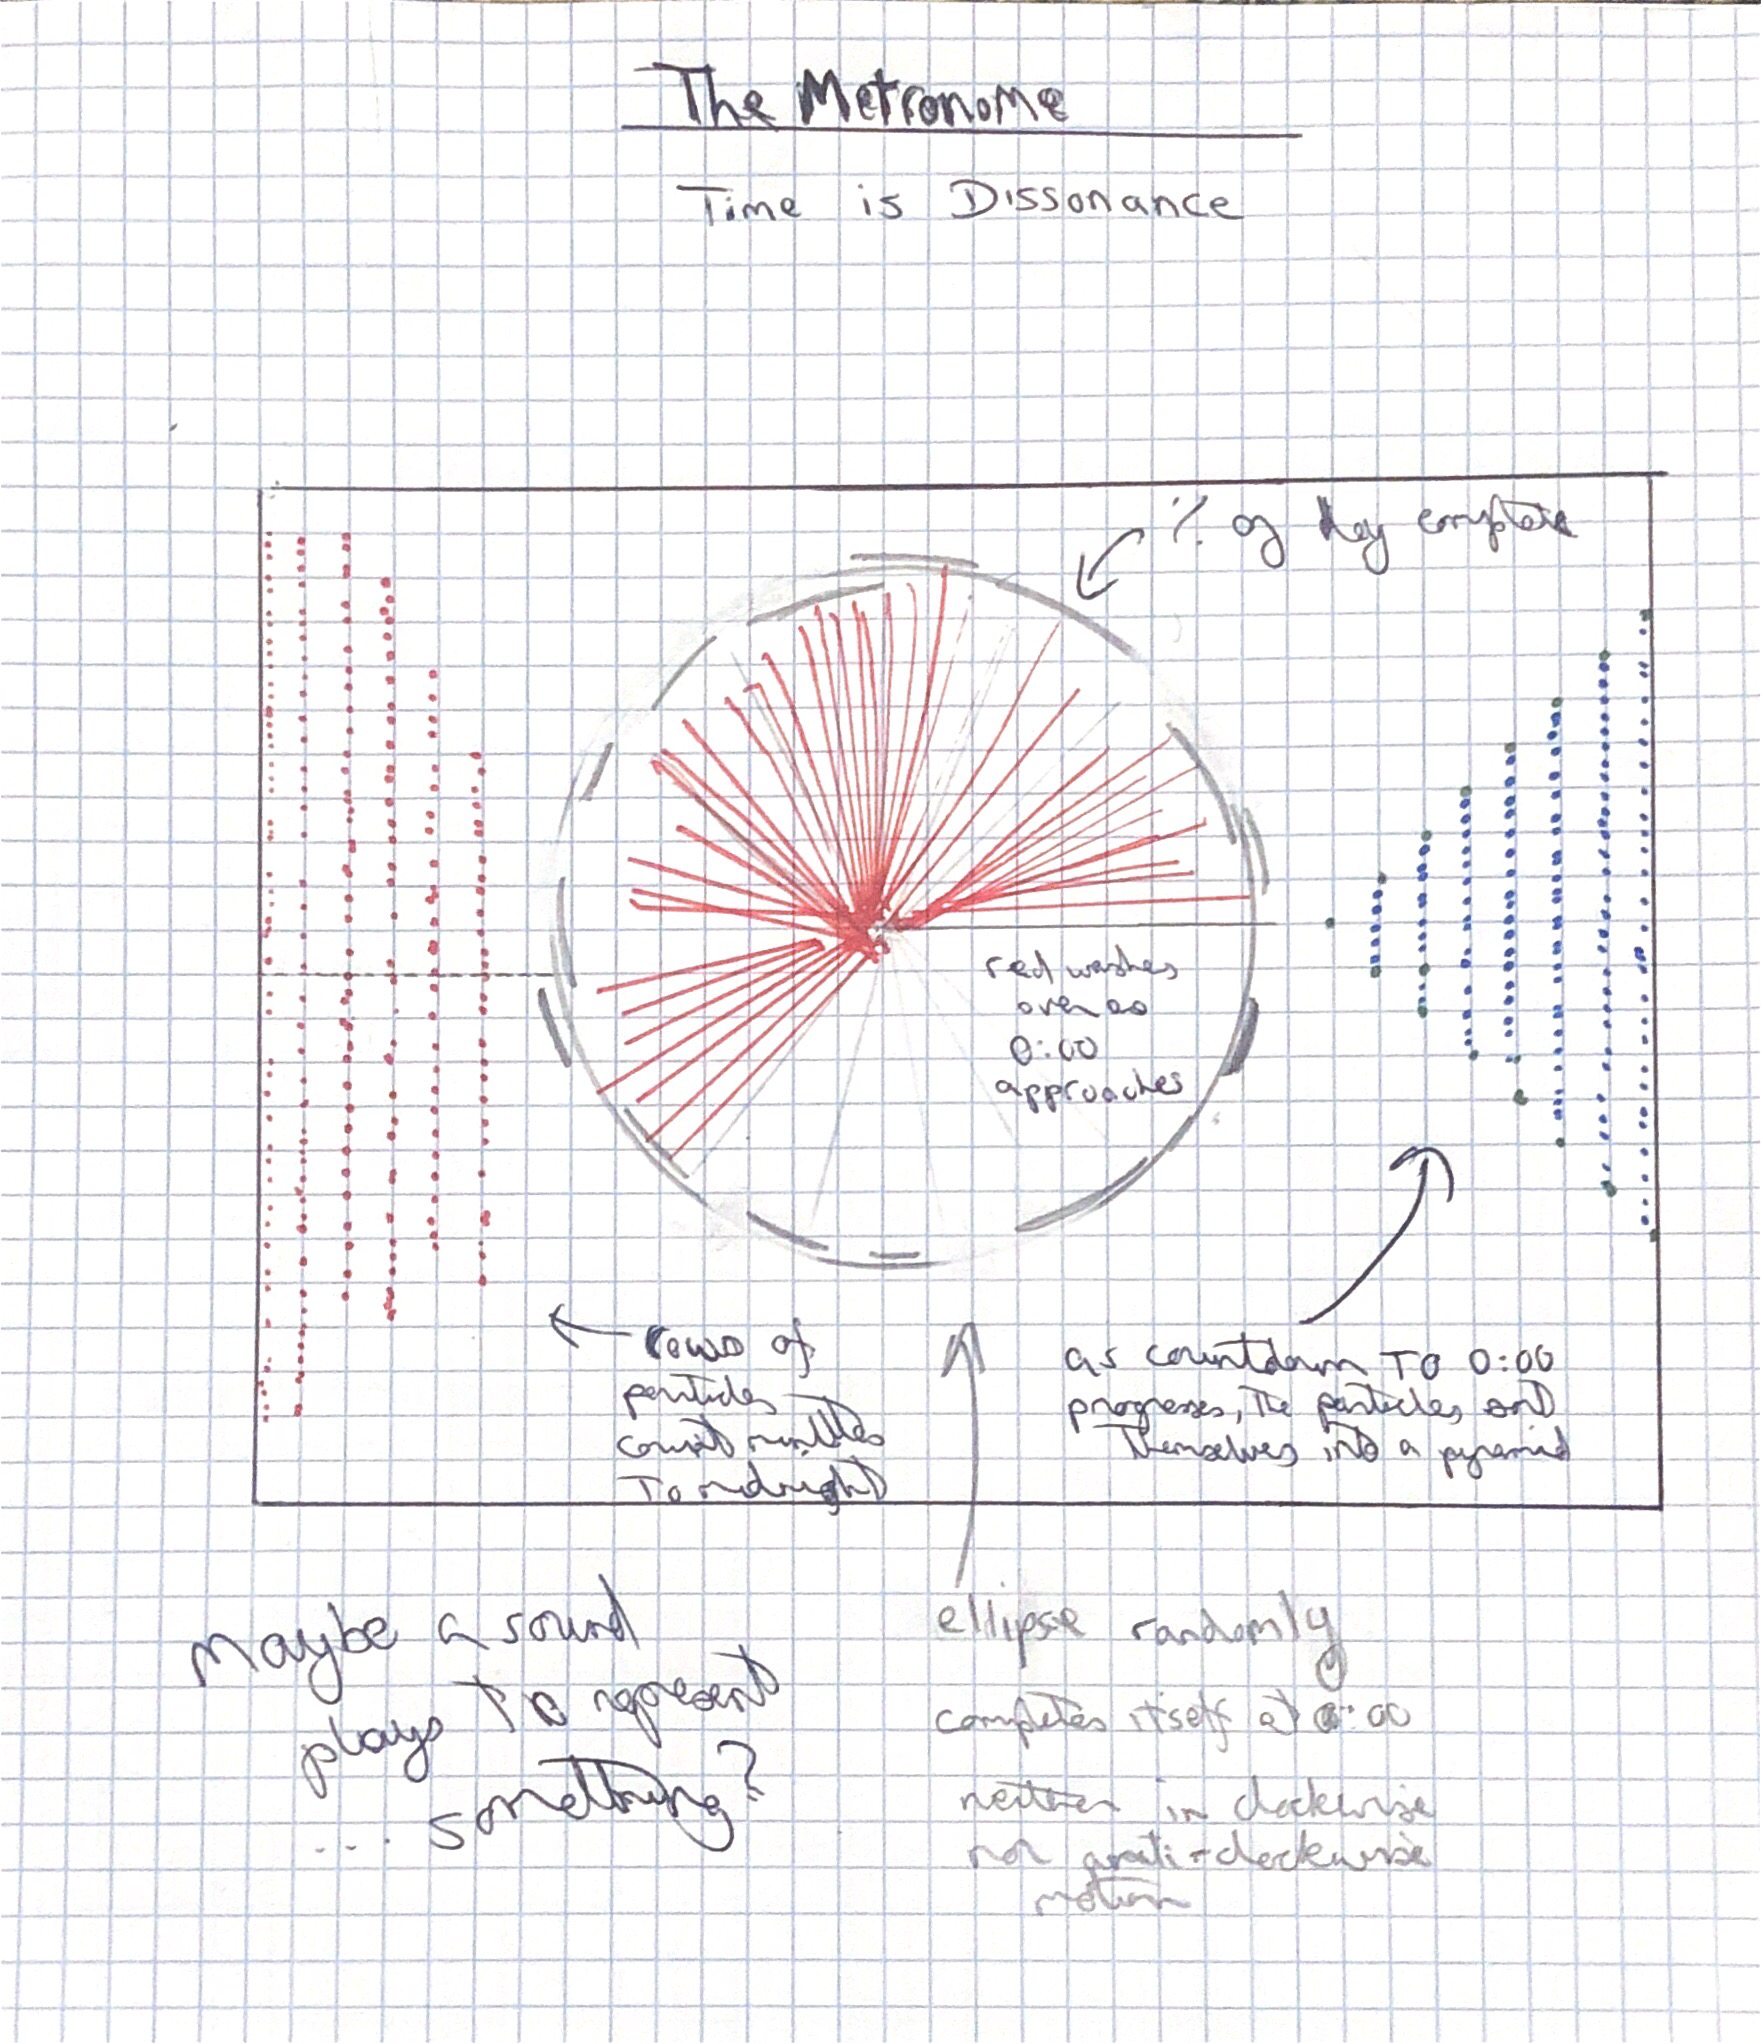 The Metronome
Time is Dissonance
% of day complete
red washes
over as
0:00
approaches
rows of
particles
count minutes
To midnight
as countdown TO 0:00
progresses, the particles sort
themselves into a pyramid
maybe a sound
plays to represent
... something?
ellipse randomly
completes itself at 0:00
neither in clockwise
nor anti-clockwise
motion